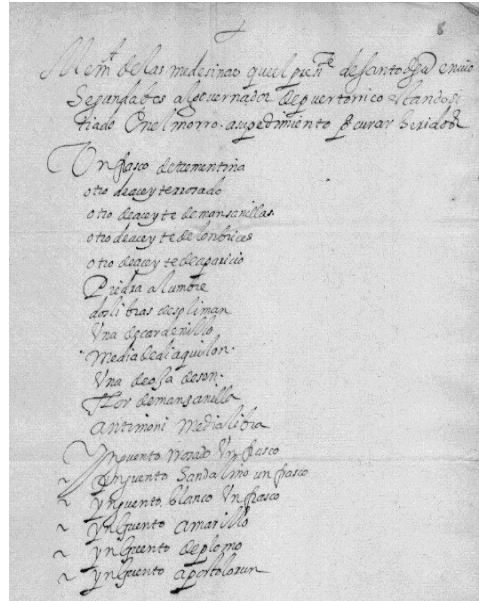 8
Mem.a de las medesinas que el presn.te de santo dgo enuio
Segunda bes al gouernador de puertorrico estando si
tiado En el morro. a su pedimiento pa curar heridos
Un frasco de trementina
otro de aceyte rrosado
otro de aceyte de mansanillas
otro de aceyte de lonbrices
otro de aceyte de aparicio
Piedra alumbre
dos libras de soliman
Una de cardenillo
Media de diaquilon.
Una de
Flor de mansanilla
Antimoni Media libra
Ynguento rrosado Un frasco
~ Ynguento Sandalino un frasco
~ ynguento blanco Un frasco
~ ynguento amarillo
~ ynguento de plomo
~ ynguento apostolorun